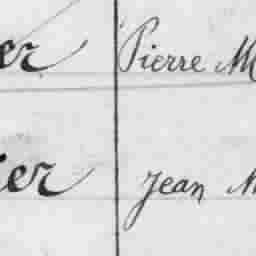 er Pierre M
er Jean M